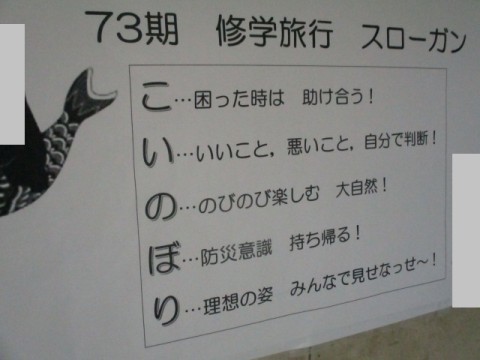 73期　修学旅行　スローガン
こ…困った時は　助け合う！
い…いいこと，悪いこと，自分で判断！
の…のびのび楽しむ　大自然！
ぼ…防災意識　持ち帰る！
り…理想の姿　みんなで見せなっせ～！